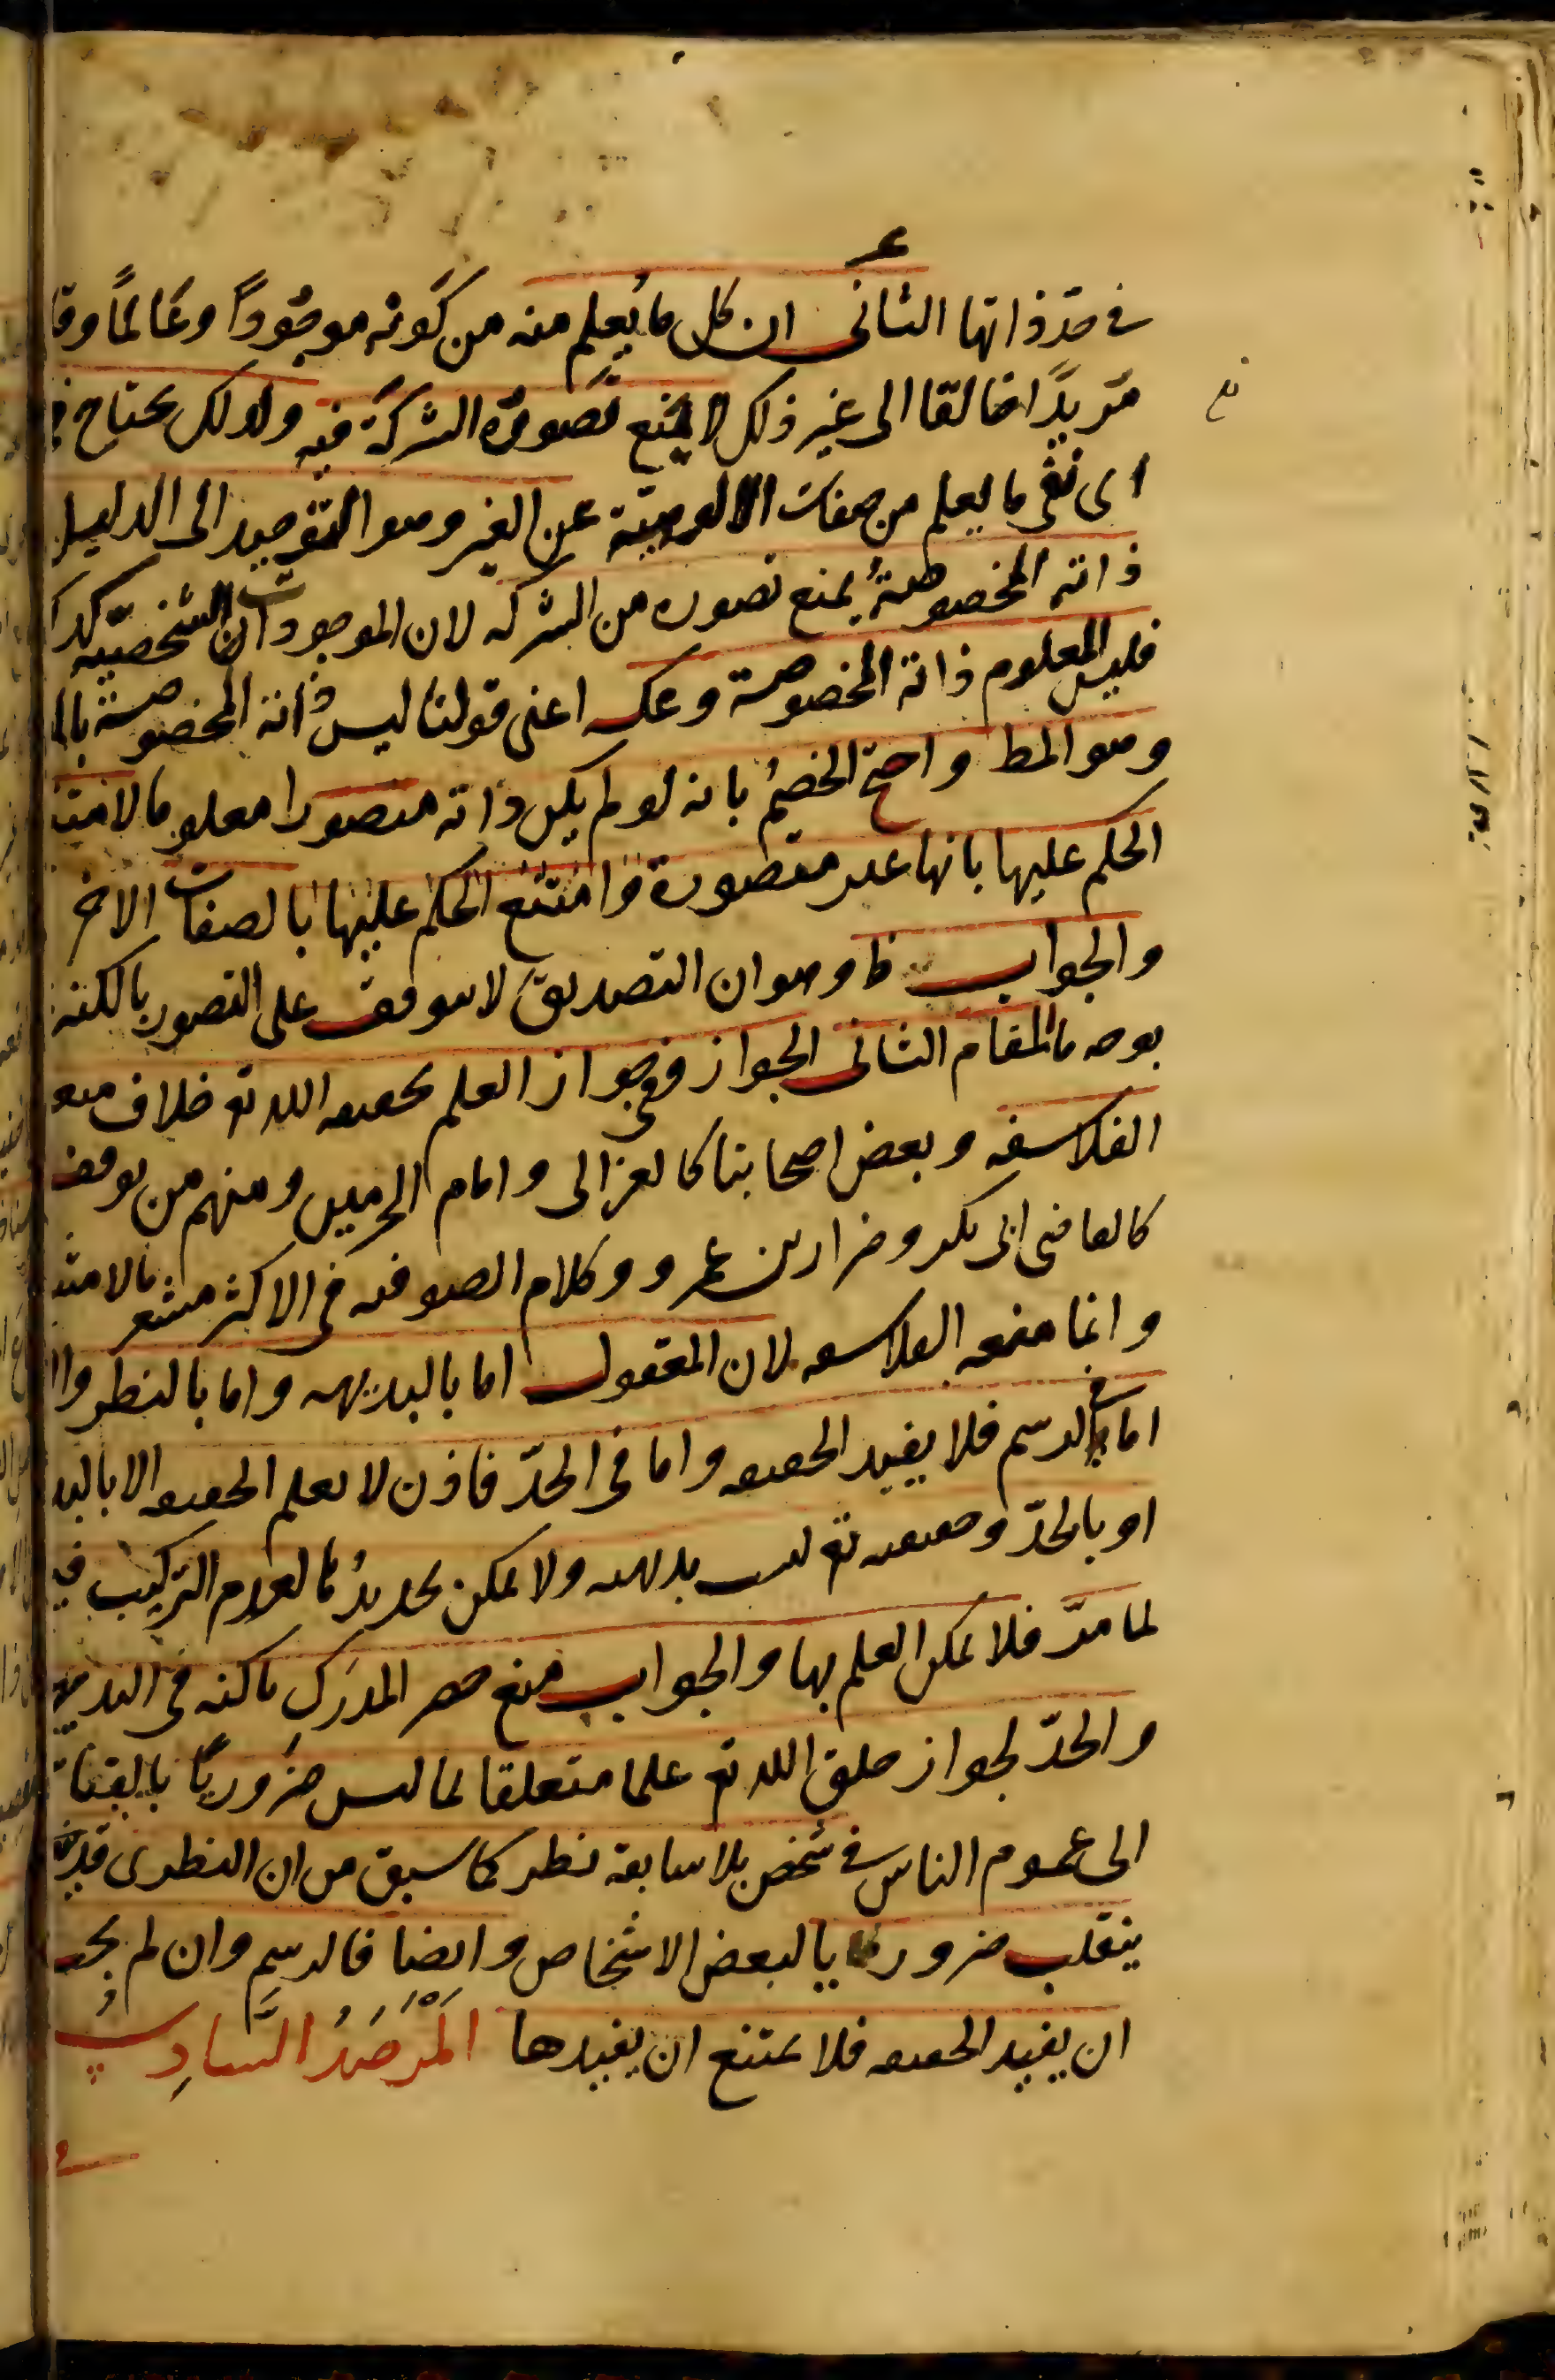 في حدّ ذاتها الثانى ان كل ما يُعلم منه من كَونه موجُوداً وعَالماً وقا
مَريداً خالقا الى غير ذلك لا يمنع تصوره الشركة فيه ولذلك يحتاج في
اى نفى ما يعلم من صفات الالوهيّة عن الغير وهو التوحيد الى الدليل
ذاته المخصوصةُ يمنع تصوره من الشركه لان الموجودات الشخصيّه كذا
فليس المعلوم ذاته المخصوصة وعكسه اعنى قولنا ليس ذاته المخصوصة بالم
وهو المط واحتج الخصمُ بانه لو لم يكن ذاته متصورا معلوما لامتنع
الحكم عليها بانها غير متصورة وامتنع الحكم عليها بالصفات الاخر
والجواب ظ وهو ان التصديق لا يتوقف على التصور بالكنه
بوجه ما المقام الثانى الجواز وفى جواز العلم بحقيقه الله تع خلاف منعه
الفلاسفه وبعض اصحابنا كالغزالى وامام الحرمين ومنهم من توقف
كالقاضى ابى بكر وضرار بن عمرو وكلام الصوفيه فى الاكثر مشعر بالامتنا
وانما منعه الفلاسفه لان المعقول اما بالبديهه واما بالنظر وال
اما في الرسم فلا يفيد الحقيقه واما فى الحدّ فاذن لا يعلم الحقيقه الا بالبد
او بالحدّ وحقيقته تع ليست بديهيه ولا يمكن تحديدُها لعدم التركيب في
لما مرّ فلا يمكن العلم بها والجواب منع حصر المدرَك بالكنه فى البديهى
والحدّ لجواز خلق الله تع علما متعلقا لما ليس ضروريًا بالقيا
الى عموم الناس في شخص بلا سابقة نظر كما سبق من ان النظرى قد
ينقلب ضروريا لبعض الاشخاص وايضا فالرسم وان لم يجب
ان يفيد الحقيقه فلا يمتنع ان يفيدها المَرْصَدُ السَّادِسُ